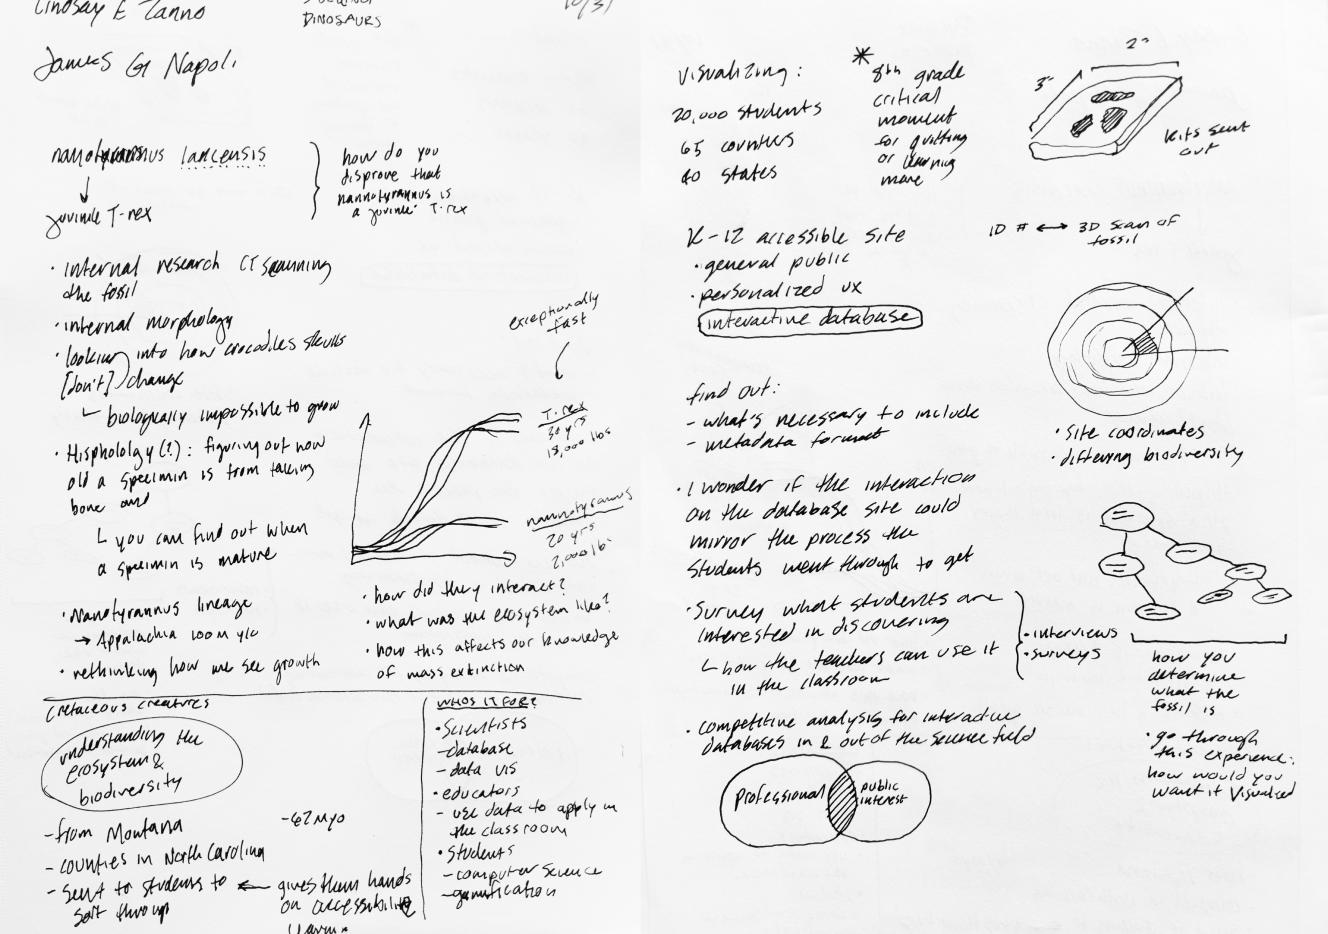 Lindsay E Zanno
DINOSAURS
10/31
James G Napoli
lancensis
juvinile T-rex
how do you
disprove that
nannotyrannus is
a juvinile T-rex
• internal research CT scanning
the fossil
• internal morphology
• looking into how crocodiles skulls
[don't] change
└ biologically impossible to grow
• Hisphology(?): figuring out how
old a specimin is from taking
bone and
└ you can find out when
a specimin is mature
• Nanotyrannus lineage
→ Appalachia 100m y/o
• rethinking how we see growth
exceptionally
fast
T-rex
30 yrs
18,000 lbs
nannotyrannus
20 yrs
2,000 lb
• how did they interact?
• what was the ecosystem like?
• how this affects our knowledge
of mass extinction
cretaceous creatures
understanding the
ecosystem &
biodiversity
- from Montana
- 67 myo
- counties in North Carolina
- sent to students to ← gives them hands
sort through
on accessibility
WHO'S IT FOR?
• Scientists
- database
- data vis
• educators
- use data to apply in
the classroom
• Students
- computer science
- gamification
Visualizing:
20,000 students
65 counties
40 states
* 8th grade
critical
moment
for quitting
or learning
more
2"
3"
kits sent
out
K-12 accessible site
• general public
• personalized ux
interactive database
ID # ↔ 3D scan of
fossil
find out:
- what's necessary to include
- metadata format
• site coordinates
• differing biodiversity
• I wonder if the interaction
on the database site could
mirror the process the
students went through to get
• Survey what students are
interested in discovering
└ how the teachers can use it
in the classroom
• interviews
• surveys
how you
determine
what the
fossil is
• go through
this experience:
how would you
want it visualized
• competitive analysis for interactive
databases in & out of the science field
professional
public
interest